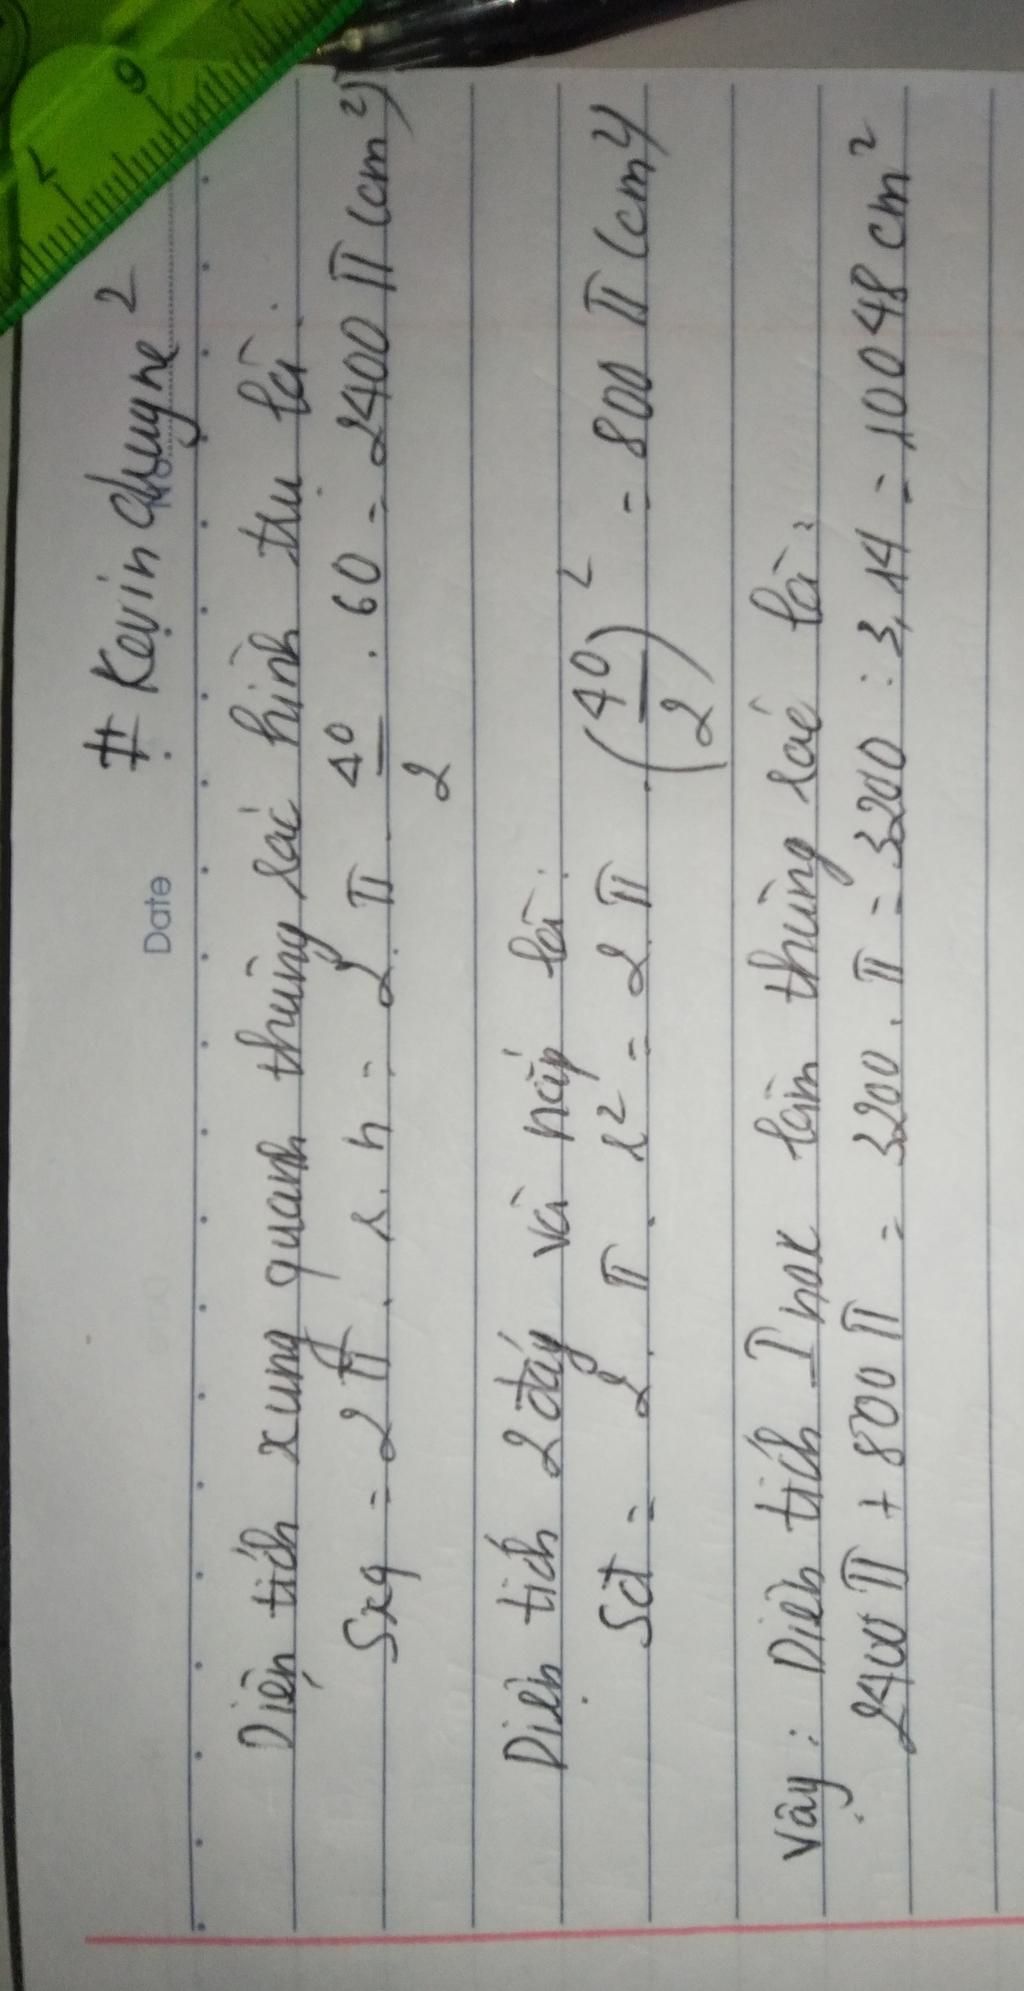 # Kevin chuyne 2
Date
No.
Diện tích xung quanh thùng rác hình trụ là:
Sxq = 2 π . r . h = 2 . π . 40/2 . 60 = 2400 π (cm²)
Diện tích 2 đáy và nắp là:
Sđ = 2 . π . r² = 2 . π . (40/2)² = 800 π (cm²)
Vậy : Diện tích Inox làm thùng rác là :
2400 π + 800 π = 3200 . π = 3200 : 3,14 = 10048 cm²
6
7